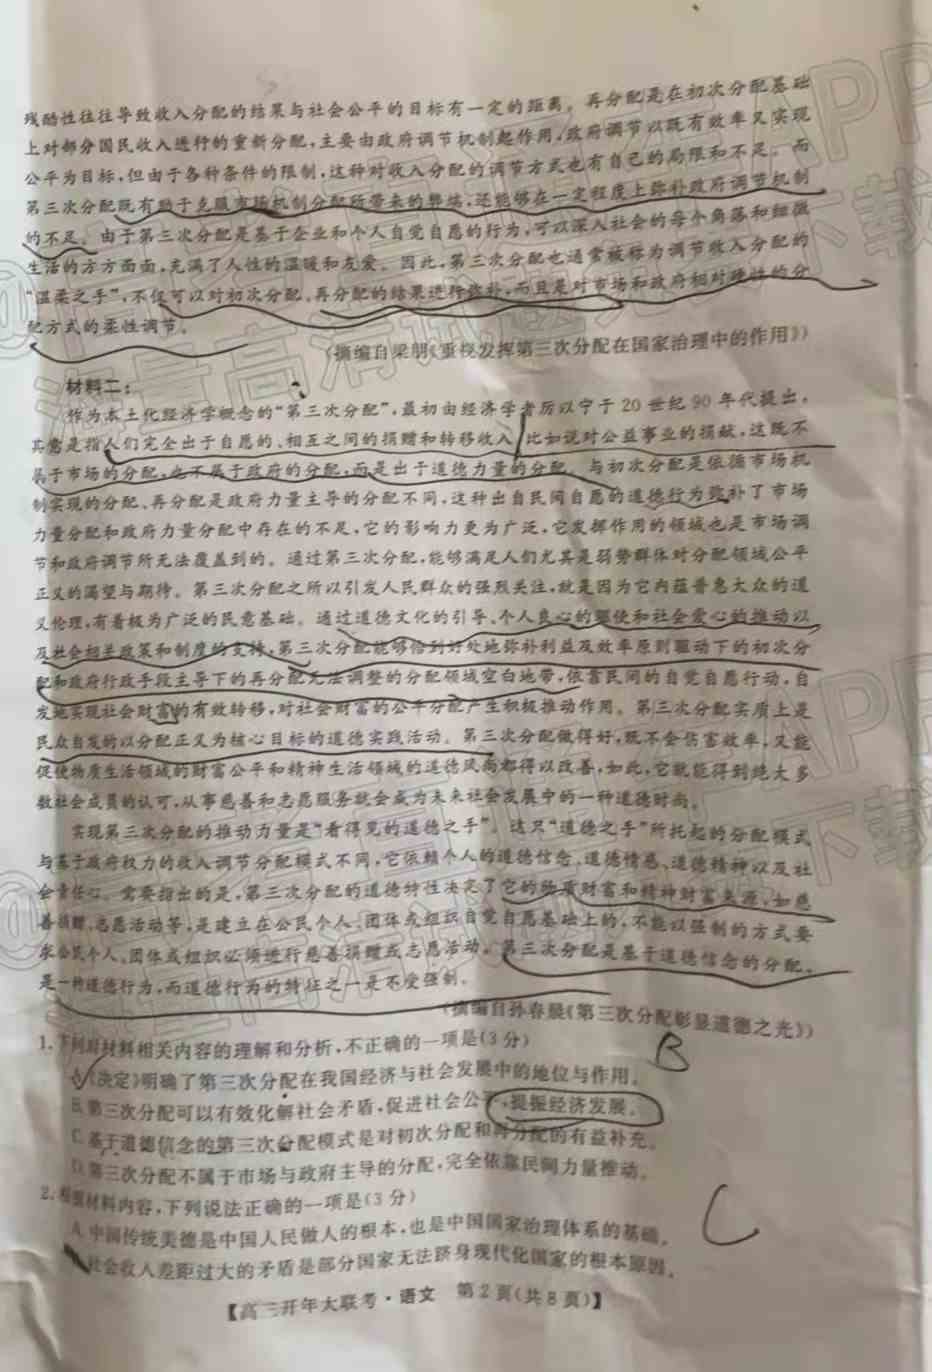 残酷性往往导致收入分配的结果与社会公平的目标有一定的距离。再分配是在初次分配基础
上对部分国民收入进行的重新分配，主要由政府调节机制起作用，政府调节以既有效率又实现
公平为目标，但由于各种条件的限制，这种对收入分配的调节方式也有自己的局限和不足。而
第三次分配既有助于克服市场机制分配所带来的弊端，还能够在一定程度上弥补政府调节机制
的不足。由于第三次分配是基于企业和个人自觉自愿的行为，可以深入社会的每个角落和细微
生活的方方面面，充满了人性的温暖和友爱。因此，第三次分配也通常被称为调节收入分配的
“温柔之手”，不仅可以对初次分配、再分配的结果进行弥补，而且是对市场和政府相对硬性的分
配方式的柔性调节。
（摘编自梁朋《重视发挥第三次分配在国家治理中的作用》）
材料二：
作为本土化经济学概念的“第三次分配”，最初由经济学者厉以宁于20世纪90年代提出，
其意是指人们完全出于自愿的、相互之间的捐赠和转移收入，比如说对公益事业的捐献，这既不
属于市场的分配，也不属于政府的分配，而是出于道德力量的分配。与初次分配是依循市场机
制实现的分配、再分配是政府力量主导的分配不同，这种出自民间自愿的道德行为弥补了市场
力量分配和政府力量分配中存在的不足，它的影响力更为广泛，它发挥作用的领域也是市场调
节和政府调节所无法覆盖到的。通过第三次分配，能够满足人们尤其是弱势群体对分配领域公平
正义的渴望与期待。第三次分配之所以引发人民群众的强烈关注，就是因为它内蕴普惠大众的道
义伦理，有着极为广泛的民意基础。通过道德文化的引导、个人良心的驱使和社会爱心的推动以
及社会相关政策和制度的支持，第三次分配能够恰到好处地弥补利益及效率原则驱动下的初次分
配和政府行政手段主导下的再分配无法调整的分配领域空白地带，依靠民间的自觉自愿行动，自
发地实现社会财富的有效转移，对社会财富的公平分配产生积极推动作用。第三次分配实质上是
民众自发的以分配正义为核心目标的道德实践活动。第三次分配做得好，既不会伤害效率，又能
促使物质生活领域的财富公平和精神生活领域的道德风尚都得以改善，如此，它就能得到绝大多
数社会成员的认可，从事慈善和志愿服务就会成为未来社会发展中的一种道德时尚。
实现第三次分配的推动力量是“看得见的道德之手”。这只“道德之手”所托起的分配模式
与基于政府权力的收入调节分配模式不同，它依赖个人的道德信念、道德情感、道德精神以及社
会责任心。需要指出的是，第三次分配的道德特性决定了它的物质财富和精神财富来源，如慈
善捐赠、志愿活动等，是建立在公民个人、团体或组织自觉自愿基础上的，不能以强制的方式要
求公民个人、团体或组织必须进行慈善捐赠或志愿活动。第三次分配是基于道德信念的分配，
是一种道德行为，而道德行为的特征之一是不受强制。
（摘编自孙春晨《第三次分配彰显道德之光》）
1.下列对材料相关内容的理解和分析，不正确的一项是（3分）
B
A.《决定》明确了第三次分配在我国经济与社会发展中的地位与作用。
B.第三次分配可以有效化解社会矛盾，促进社会公平，提振经济发展。
C.基于道德信念的第三次分配模式是对初次分配和再分配的有益补充。
D.第三次分配不属于市场与政府主导的分配，完全依靠民间力量推动。
2.根据材料内容，下列说法正确的一项是（3分）
C
A.中国传统美德是中国人民做人的根本，也是中国国家治理体系的基础。
社会收入差距过大的矛盾是部分国家无法跻身现代化国家的根本原因。
【高三开年大联考·语文 第2页（共8页）】